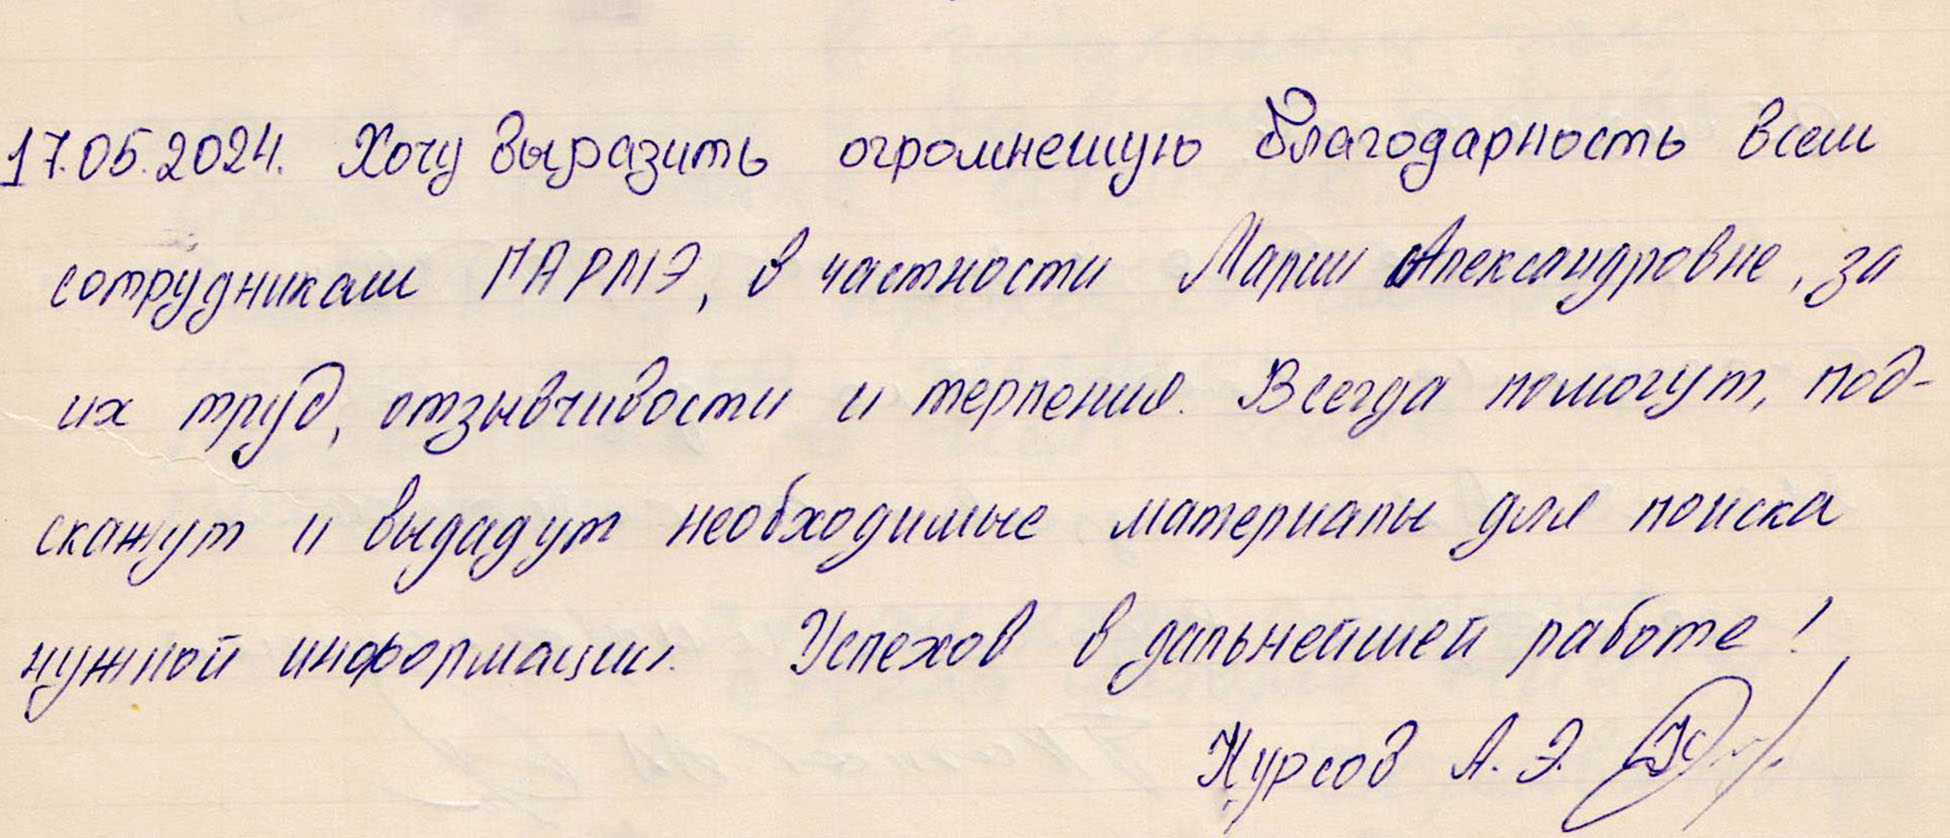 17.05.2024. Хочу выразить огромнешую благодарность всем
сотрудникам ГАРМЭ, в частности Марии Александровне, за
их труд, отзывчивости и терпения. Всегда помогут, под-
скажут и выдадут необходимые материалы для поиска
нужной информации. Успехов в дальнейшей работе!
Курсов А. Э.